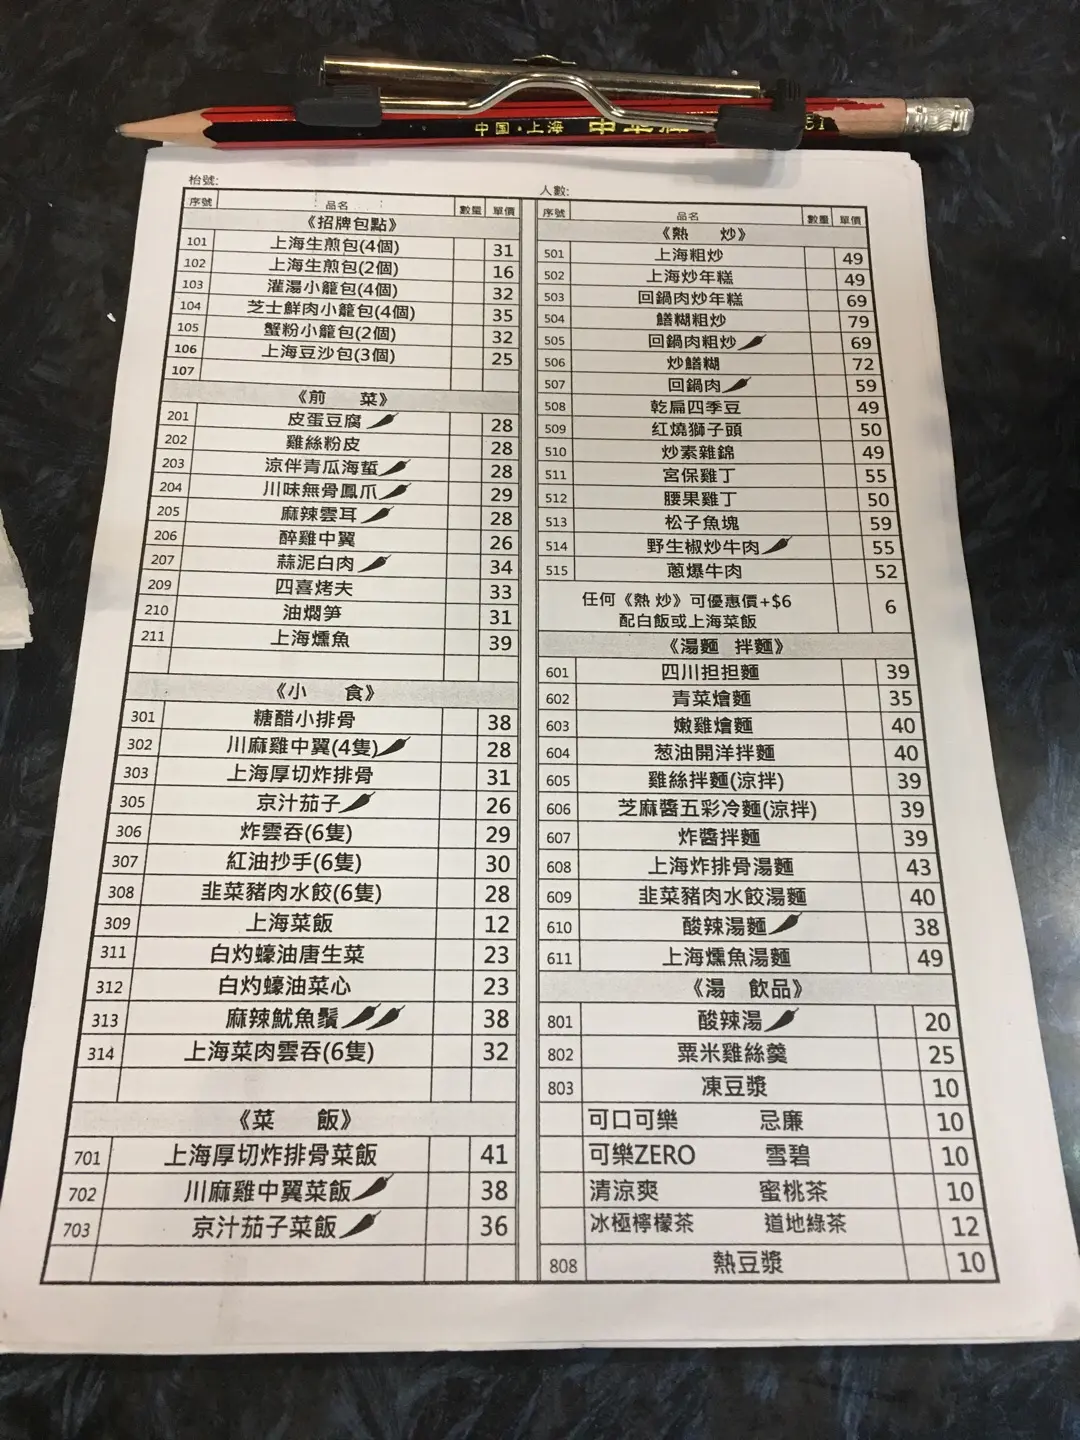 中国·上海
枱號:
序號 品名 數量 單價
《招牌包點》
101 上海生煎包(4個) 31
102 上海生煎包(2個) 16
103 灌湯小籠包(4個) 32
104 芝士鮮肉小籠包(4個) 35
105 蟹粉小籠包(2個) 32
106 上海豆沙包(3個) 25
107
《前 菜》
201 皮蛋豆腐 28
202 雞絲粉皮 28
203 涼伴青瓜海蜇 28
204 川味無骨鳳爪 29
205 麻辣雲耳 28
206 醉雞中翼 26
207 蒜泥白肉 34
209 四喜烤夫 33
210 油燜笋 31
211 上海燻魚 39
《小 食》
301 糖醋小排骨 38
302 川麻雞中翼(4隻) 28
303 上海厚切炸排骨 31
305 京汁茄子 26
306 炸雲吞(6隻) 29
307 紅油抄手(6隻) 30
308 韭菜豬肉水餃(6隻) 28
309 上海菜飯 12
311 白灼蠔油唐生菜 23
312 白灼蠔油菜心 23
313 麻辣魷魚鬚 38
314 上海菜肉雲吞(6隻) 32
《菜 飯》
701 上海厚切炸排骨菜飯 41
702 川麻雞中翼菜飯 38
703 京汁茄子菜飯 36
人數:
序號 品名 數量 單價
《熱 炒》
501 上海粗炒 49
502 上海炒年糕 49
503 回鍋肉炒年糕 69
504 鱔糊粗炒 79
505 回鍋肉粗炒 69
506 炒鱔糊 72
507 回鍋肉 59
508 乾扁四季豆 49
509 红燒獅子頭 50
510 炒素雜錦 49
511 宮保雞丁 55
512 腰果雞丁 50
513 松子魚塊 59
514 野生椒炒牛肉 55
515 蔥爆牛肉 52
任何《熱 炒》可優惠價+$6 6
配白飯或上海菜飯
《湯麵 拌麵》
601 四川担担麵 39
602 青菜燴麵 35
603 嫩雞燴麵 40
604 葱油開洋拌麵 40
605 雞絲拌麵(涼拌) 39
606 芝麻醬五彩冷麵(涼拌) 39
607 炸醬拌麵 39
608 上海炸排骨湯麵 43
609 韭菜豬肉水餃湯麵 40
610 酸辣湯麵 38
611 上海燻魚湯麵 49
《湯 飲品》
801 酸辣湯 20
802 粟米雞絲羹 25
803 凍豆漿 10
可口可樂 忌廉 10
可樂ZERO 雪碧 10
清涼爽 蜜桃茶 10
冰極檸檬茶 道地綠茶 12
808 熱豆漿 10